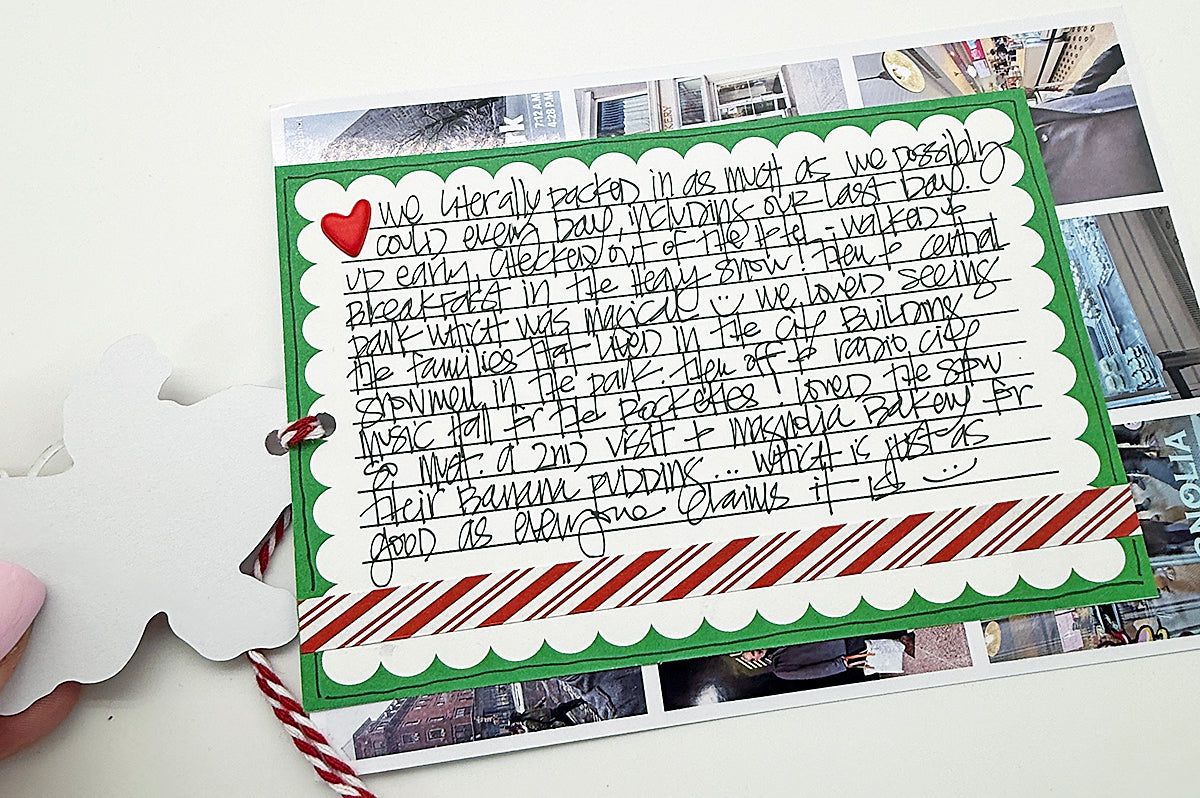 7:12 A.M
4:28 P.M
KERY
we literally packed in as much as we possibly
could every day, including our last day.
up early, checked out of the hotel - walked to
breakfast in the heavy snow! Then to central
park which was magical :) we loved seeing
the families that lived in the city building
snowmen in the park. then off to radio city
music hall for the Rockettes. loved the show
so much. a 2nd visit to magnolia Bakery for
their Banana pudding... which is just as
good as everyone claims it is! :)